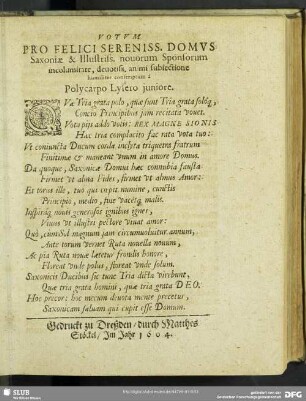 VOTVM
PRO FELICI SERENISS. DOMVS
Saxoniæ & Illustriss. nouorum Sponsorum
incolumitate, deuota animi subiectione
humiliter conscriptum à
Polycarpo Lysero juniore.
QVæ Tria grata polo, quæ sunt Tria grata solóq́,
Concio Principibus jam recitata vouet.
Vota pijs addo votis: REX MAGNE SIONIS
Hac tria complacito fac rata vota tuo:
Vt coniuncta Ducum corda inclyta triquetra fratrum
Finitimæ & maneant vnum in amore Domus.
Da quoque, Saxonicæ Domui hæc connubia fausta
Firmet vt alma Fides, firmet vt almus Amor:
Et torus ille, tuo qui cupit numine, cunctis
Principiò, medio, fine vacetq́ malis.
Inspiresq́ noui generosos ignibus ignes,
Vnus vt illustri pectore viuat amor:
Qui, cùm Sol magnum jam circumuoluitur annum,
Ante torum vernet Ruta nouella nouum,
Ac pia Ruta nouæ lætetur frondis honore,
Floreat vnde polus, floreat vnde solum.
Saxonicis Ducibus sic tunc Tria dicta virebunt,
Quæ tria grata homini, quæ tria grata DEO.
Hoc precor: hoc mecum deuota mente precetur,
Saxonicam saluam qui cupit esse Domum.
Gedruckt zu Dreßden / durch Matthes
Stöckel / Im Jahr 1604.
SLUB
DFG